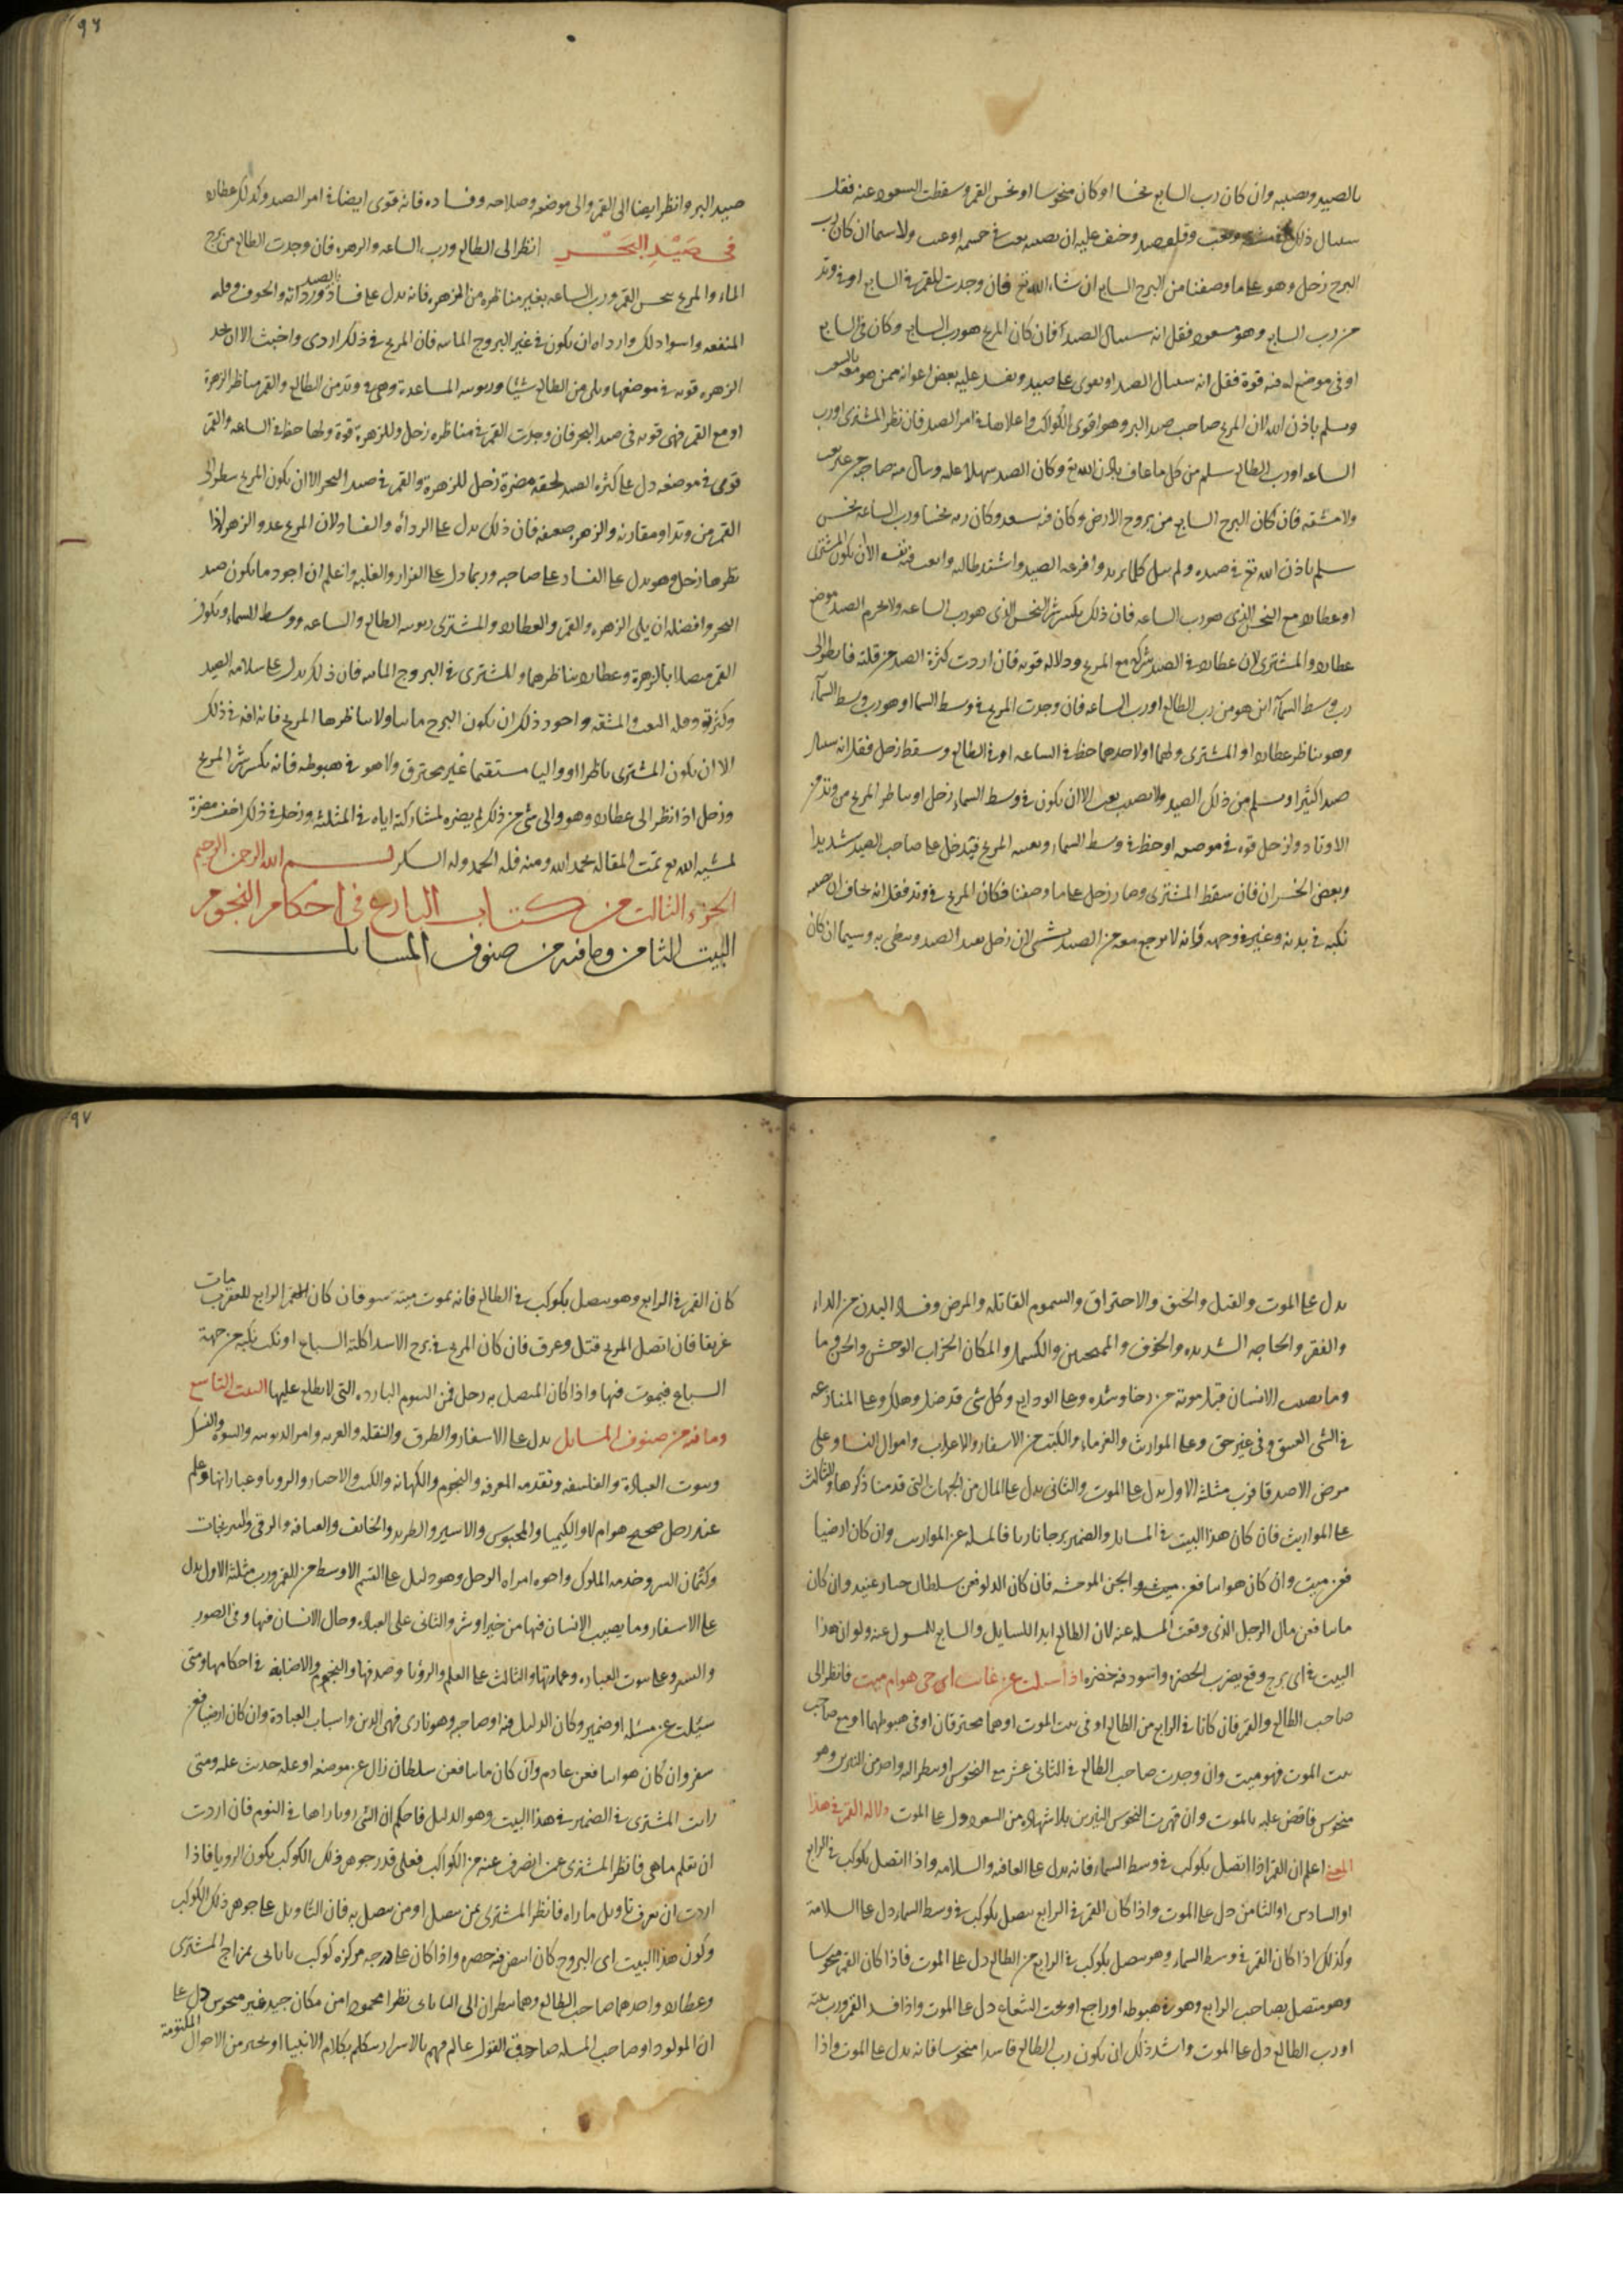 بالصيد ونصبه وان كان رب السابع نحسا او كان منحوسا او نحس القمر وسقطت السعود عنه فقل
البرج زحل وهو على ما وصفنا من البرج السابع ان شاء الله تع فان وجدت القمر في السابع او في وتد
من رب السابع وهو مسعود فقل انه سينال الصيد فان كان المريخ هو رب السابع وكان في السابع
او في موضع له فيه قوة فقل انه سينال الصيد ويقوى على صيد ويفسد عليه بعض اعوانه ممن هو معه
ويسلم باذن الله لان المريخ صاحب صيد البر وهو اقوى الكواكب واعلاها في امر الصيد فان نظر المشترى او رب
الساعه او رب الطالع سلم من كل ما عاف باذن الله تع وكان الصيد سهلا عليه ونال منه حاجته من غير تعب
ولا مشقه فان كان البرج السابع من بروج الارض وكان فيه سعد وكان ربه نحسا ورب الساعه نحس
سلم باذن الله تع في صيده ولم ينل كلما يريد وافزعه الصيد واشتد طالبه واتعب فيه نفسه الا ان يكون المشترى
او عطارد مع النحس الذي هو رب الساعه فان ذلك يكسر شر النحس الذي هو رب الساعه ولا يحرم الصيد موضع
عطارد والمشترى لان عطارد في الصيد شركه مع المريخ ودلاله قويه فان اردت كثرة الصيد من قلته فانظر الى
رب وسط السماء اين هو من رب الطالع او رب الساعه فان وجدت المريخ في وسط السما او هو رب وسط السماء
وهو يناظر عطارد او المشترى ولهما او لاحدهما حظ في الساعه او في الطالع وسقط زحل فقل انه سينال
صيدا كثيرا ويسلم من ذلك الصيد ولا يصيبه تعب الا ان يكون في وسط السماء زحل او يناظر المريخ من وتد من
الاوتاد ولزحل قوه في موضعه او حظ في وسط السماء ونصيب المريخ فيدخل على صاحب الصيد شديدا
وبعض الخسران فان سقط المشترى وصار زحل على ما وصفنا فكان المريخ في وتد فقل انه يخاف ان تصيبه
نكبه في بدنه وغير في وجهه فانه لا يرجع معه من الصيد بشى لان زحل يعيد الصيد وسيما ان كان
٩٦
صيد البر وانظر ايضا الى القمر والى موضعه وصلاحه وفساده فانه قوى ايضا في امر الصيد وكذلك عطارد
في صيد البحر انظر الى الطالع ورب الساعه والزهره فان وجدت الطالع من برج
الماء والمريخ ينحس القمر ورب الساعه بغير مناظره من الزهره فانه يدل على فساد الصيد ورداته والخوف وقله
المنفعه واسوا ذلك وارداه ان يكون في غير البروج المائيه فان المريخ في ذلك اردى واخبث الا ان تجد
الزهره قويه في موضعها وتلى من الطالع شيئا وربوبيه الساعه وهي في وتد من الطالع والقمر يناظر الزهرة
او مع القمر فهي قويه في صيد البحر فان وجدت القمر في مناظره زحل وللزهرة قوة ولها حظ في الساعه والقمر
قوى في موضعه دل على كثره الصيد لحقه مضرة زحل للزهرة والقمر في صيد البحر الا ان يكون المريخ ينظر الى
القمر من وتد او مقارنه والزهره ضعيفه فان ذلك يدل على الرداه والفساد لان المريخ عدو الزهرة اذا
نظرها زحل وهو يدل على الفساد على صاحبه وربما دل على الفزار والغلبه واعلم ان اجود ما يكون صيد
البحر وافضله ان يلى الزهره والقمر والعطارد والمشترى ربوبيه الطالع والساعه ووسط السماء ويكون
القمر متصلا بالزهرة وعطارد يناظرهما والمشترى في البروج المائيه فان ذلك يدل على سلامه الصيد
وكثرته وقله التعب والمشقه واجود ذلك ان يكون البرج مائيا ولا يناظرها المريخ فانه افه في ذلك
الا ان يكون المشترى ناظرا او واليا مستقيما غير محترق ولا هو في هبوطه فانه يكسر شر المريخ
وزحل اذا نظر الى عطارد وهو والى شى من ذلك لم يضره لمشاركته اياه في المثلثه وزحل في ذلك اخف مضرة
لمشيه الله تع تمت المقاله بحمد الله ومنه فله الحمد وله الشكر بسم الله الرحمن الرحيم
الجزء الثالث من كتاب البارع في احكام النجوم
البيت الثامن وما فيه من صنوف المسايل
يدل على الموت والقتل والخنق والاحتراق والسموم القاتله والمرض وفساد البدن من الداء
والفقر والحاجه الشديده والخوف والممتحنين والكسار والمكان الخراب الوحش والحزن وما
وما يصيب الانسان قبل موته من رخا وشده وعلى الودايع وكل شى قد ضل وهلك وعلى المنازعه
في الشى العتيق وفي غير حق وعلى المواريث والغرماء والكتب من الاسفار والاعراب واموال النسا وعلى
مرض الاصدقا فرب مثلثه الاول يدل على الموت والثانى يدل على المال من الجهات التى قدمنا ذكرها والثالث
على المواريث فان كان هذا البيت في المسايل والضمير برجا ناريا فالمسله عن المواريث وان كان ارضيا
فعن ميت وان كان هوائيا فعن ميت والجن الموحشه فان كان الدلو فعن سلطان جبار عنيد وان كان
مائيا فعن مال الرجل الذى وقعت المسله عنه لان الطالع ابدا للسايل والسابع للمسول عنه ولوان هذا
البيت في اى برج وقع يضرب الخضره واسود فيه خضره اذا سيلت عن غايب اى حى هو ام ميت فانظر الى
صاحب الطالع والقمر فان كانا في الرابع من الطالع او في بيت الموت او هما محترقان او في هبوطهما او مع صاحب
بيت الموت فهو ميت وان وجدت صاحب الطالع في الثانى عشر مع النحوس او ينظر اليه واحد من النيرين وهو
منحوس فاقض عليه بالموت وان قهرت النحوس النيرين بلا شهاده من السعود دل على الموت دلاله القمر في هذا
اعلم ان القمر اذا اتصل بكوكب في وسط السماء فانه يدل على العافيه والسلامه واذا اتصل بكوكب في الرابع
او السادس او الثامن دل على الموت واذا كان القمر في الرابع يتصل بكوكب في وسط السماء دل على السلامه
وكذلك اذا كان القمر في وسط السماء وهو يتصل بكوكب في الرابع من الطالع دل على الموت فاذا كان القمر منحوسا
وهو متصل بصاحب الرابع وهو في هبوطه او راجع او تحت الشعاع دل على الموت واذا فسد القمر ورب بيته
او رب الطالع دل على الموت واشد ذلك ان يكون رب الطالع فاسدا منحوسا فانه يدل على الموت واذا
٩٧
كان القمر في الرابع وهو يتصل بكوكب في الطالع فانه يموت ميته سو فان كان القمر الرابع للعقرب مات
غريقا فان اتصل المريخ قتل وغرق فان كان المريخ في برج الاسد اكلته السباع او نكب نكبه من جهة
السباع فيموت فيها واذا كان المتصل به زحل فمن السموم البارده التى لا يطلع عليها البيت التاسع
وما فيه من صنوف المسايل يدل على الاسفار والطرق والنقله والغربه وامر الربوبيه والنبوه والنسك
وبيوت العبادة والفلسفه وتقدمه المعرفه والنجوم والكهانه والكتب والاخبار والرويا وعباراتها وعلم
عند رجل صحيح هو ام لا والكيميا والمحبوس والاسير والطريد والخائف والعيافه والرقى والنيرنجات
وكتمان السر وخدمه الملوك واخوه امراه الرجل وهو دليل على القسم الاوسط من العمر ورب مثلثه الاول يدل
على الاسفار وما يصيب الانسان فيها من خير او شر والثانى على العباده وحال الانسان فيها وفي الصور
والسر وعلى بيوت العباده وعمارتها والثالث على العلم والرؤيا وصدقها والنجوم والاصابه في احكامها ومتى
سيلت عن مسئله او ضمير وكان الدليل فيه او صاحبه وهو نارى فهى الدين واسباب العبادة وان كان ارضيا فعن
سفر وان كان هوائيا فعن عادم وان كان مائيا فعن سلطان زال عن موضعه او عله حدثت عليه ومتى
رايت المشترى في الضمير في هذا البيت وهو الدليل فاحكم ان الشى رويا راها في النوم فان اردت
ان تعلم ما هى فانظر المشترى عمن انصرف عنه من الكواكب فعلى قدر جوهر ذلك الكوكب يكون الرويا فاذا
اردت ان تعرف تاويل ما راه فانظر المشترى بمن يتصل او من يتصل به فان التاويل على جوهر ذلك الكوكب
وكون هذا البيت اى البروج كان ابيض فيه خضره واذا كان على درجه مركزه كوكب بابانى بمزاج المشترى
وعطارد واحدهما صاحب الطالع وهما ينظران الى البابانى نظرا محمودا من مكان جيد غير منحوس دل على
ان المولود او صاحب المسله صادق القول عالم فهم بالاسرار يتكلم بكلام الانبيا او يخبر من الاحوال المكتومة